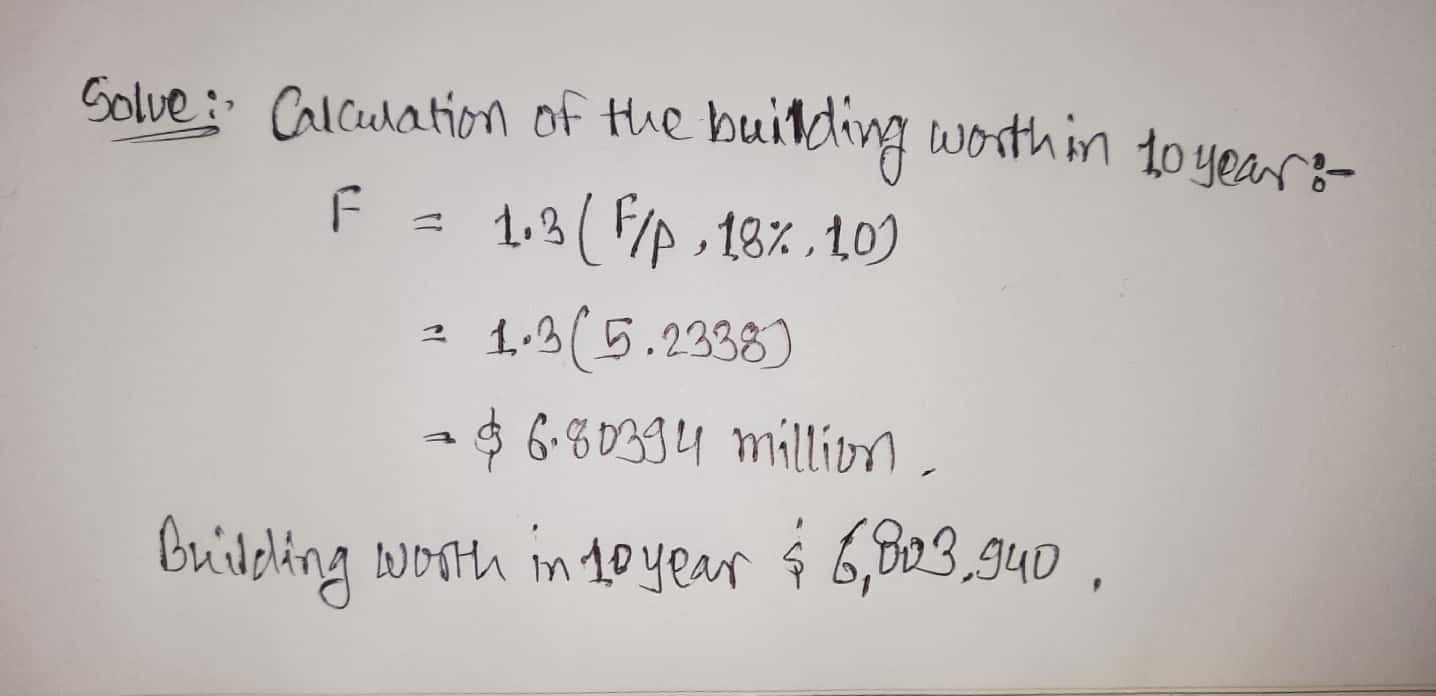 Solve:- Calculation of the building worth in 10 year:-
F = 1.3 (F/P, 18%, 10)
= 1.3 (5.2338)
= $ 6.80394 million.
Building worth in 10 year $ 6,803,940.